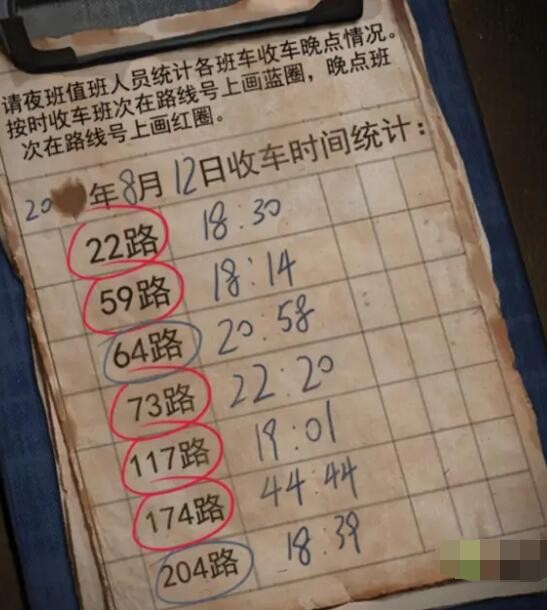 请夜班值班人员统计各班车收车晚点情况。
按时收车班次在路线号上画蓝圈，晚点班
次在路线号上画红圈。
20 年8月12日收车时间统计：
22路 18:30
59路 18:14
64路 20:58
73路 22:20
117路 19:01
174路 44:44
204路 18:39